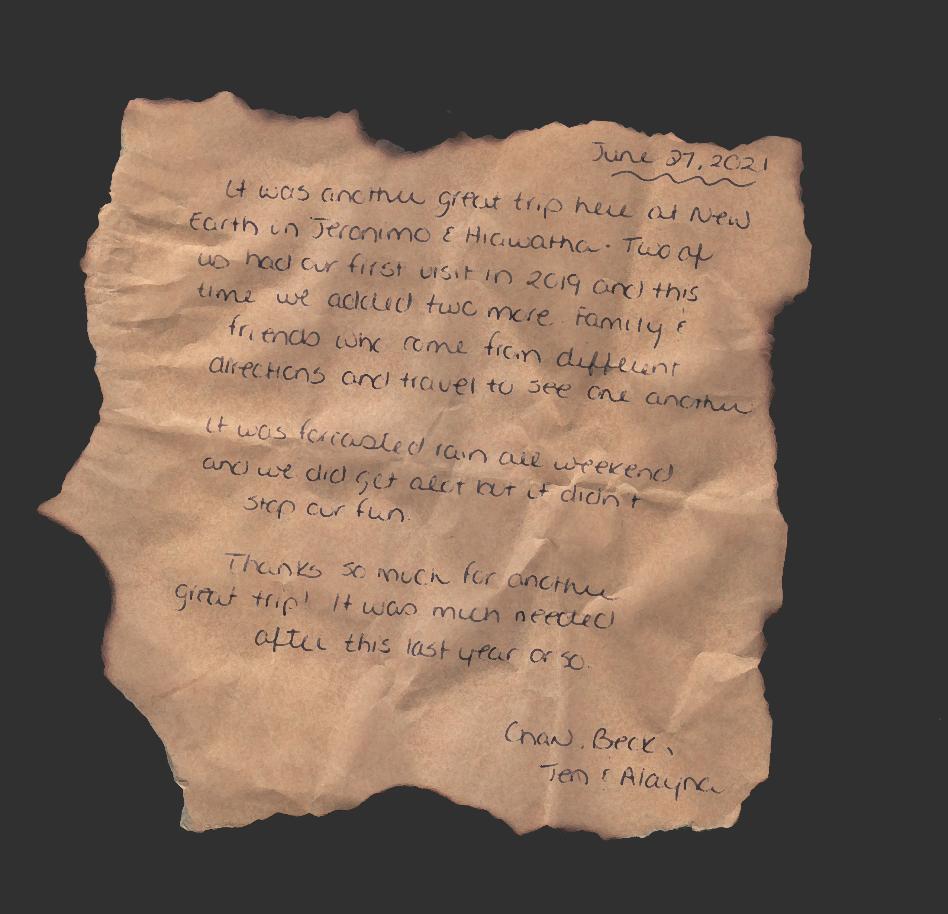 June 27, 2021
It was another great trip here at New
Earth in Jeronimo & Hiawatha. Two of
us had our first visit in 2019 and this
time we added two more. Family &
friends who come from different
directions and travel to see one another
It was forcasted rain all weekend
and we did get alot but it didn't
stop our fun.
Thanks so much for another
great trip! It was much needed
after this last year or so.
Beck,
Jen & Alayna